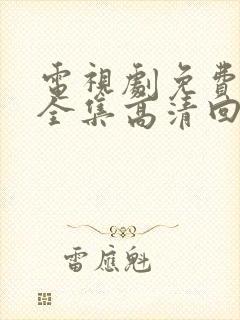 電視劇免費
全集高清回
雷應魁